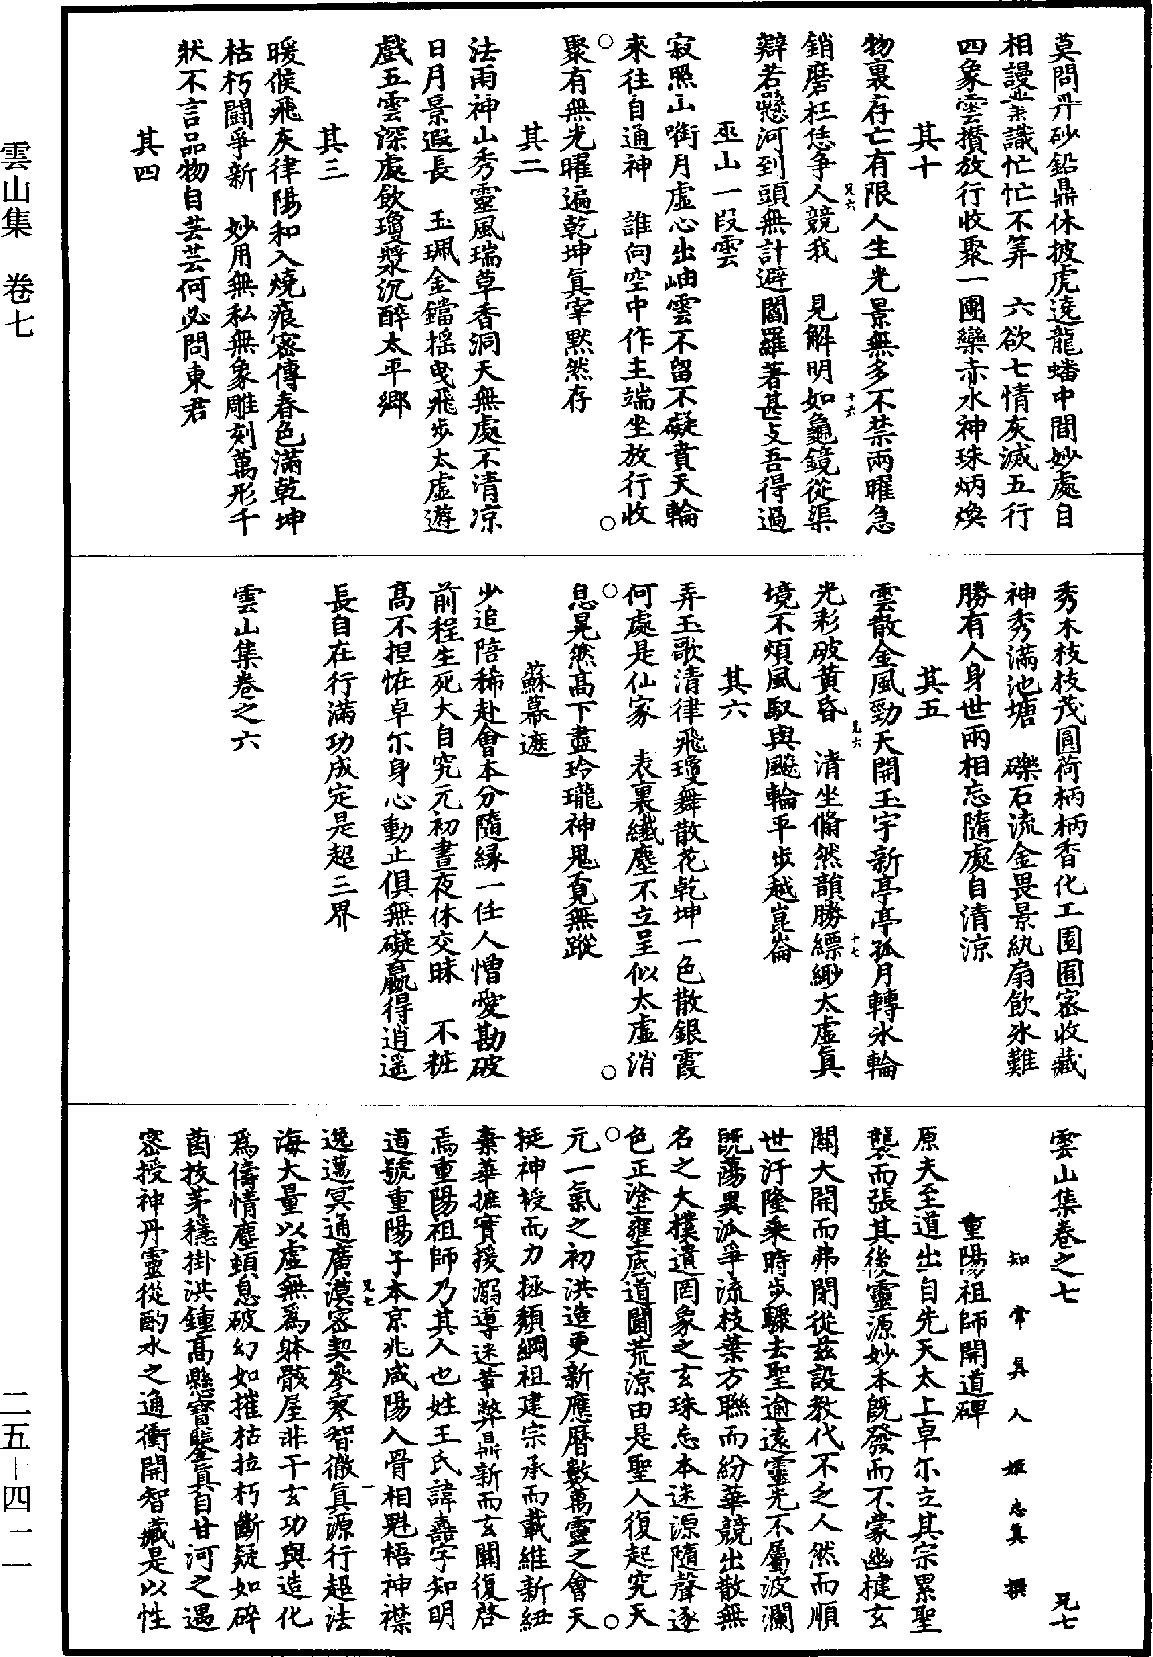 莫問丹砂鉛鼎休披虎遶龍蟠中間妙處自
相謾業識忙忙不筭　六欲七情灰滅五行
四象雲攢放行收聚一團欒赤水神珠炳煥
其十
物裏存亡有限人生光景無多不禁兩曜急
銷磨枉恁爭人競我　見解明如龜鏡從渠
辯若懸河到頭無計避閻羅著甚支吾得過
巫山一段雲
寂照山銜月虛心出岫雲不留不礙賁天輪
來往自通神　誰向空中作主端坐放行收
聚有無光曜遍乾坤真宰默然存
其二
法雨神山秀靈風瑞草香洞天無處不清涼
日月景遐長　玉珮金鐺搖曳飛步太虛遊
戲五雲深處飲瓊漿沉醉太平鄉
其三
暖候飛灰律陽和入燒痕密傳春色滿乾坤
枯朽鬬爭新　妙用無私無象雕刻萬形千
狀不言品物自芸芸何必問東君
其四
秀木枝枝茂圓荷柄柄香化工園圃密收藏
神秀滿池塘　礫石流金畏景紈扇飲冰難
勝有人身世兩相忘隨處自清涼
其五
雲散金風勁天開玉宇新亭亭孤月轉冰輪
光彩破黃昏　清坐翛然韻勝縹緲太虛真
境不煩風馭與飈輪平步越崑崙
其六
弄玉歌清律飛瓊舞散花乾坤一色散銀霞
何處是仙家　表裏纖塵不立呈似太虛消
息晃然高下盡玲瓏神鬼覓無蹤
蘇幕遮
少追陪稀赴會本分隨緣一任人憎愛勘破
前程生死大自究元初晝夜休交昧　不粧
高不捏怪卓尓身心動止俱無礙贏得逍遥
長自在行滿功成定是超三界
雲山集卷之六
雲山集卷之七　兄七
知常真人姬志真撰
重陽祖師開道碑
原夫至道出自先天太上卓尓立其宗累聖
襲而張其後靈源妙本旣發而不蒙幽楗玄
關大開而弗閉從茲設教代不乏人然而順
世汙隆乘時步驟去聖逾遠靈光不屬波瀾
旣蕩異派爭流枝葉方聯而紛華競出散無
名之大樸遺罔象之玄珠忘本迷源隨聲逐
色正塗壅底道圓荒涼由是聖人復起究天
元一氣之初洪造更新應曆數萬靈之會天
挺神授而力拯頹綱祖建宗承而載維新紐
棄華摭實援溺導迷革弊鼎新而玄關復啓
焉重陽祖師乃其人也姓王氏諱嚞字知明
道號重陽子本京兆咸陽人骨相魁梧神襟
逸邁冥通廣漠密契參寥智徹真源行超法
海大量以虛無爲躰骸屋非干玄功與造化
爲儔情塵頓息破幻如摧枯拉朽斷疑如碎
菌拔茅穩掛洪鍾高懸寶鑒真自甘河之遇
密授神丹靈從酌水之通衝開智藏是以性
雲山集　卷七
二五－四一一
兄六
十六
兄六
十七
兄七
一